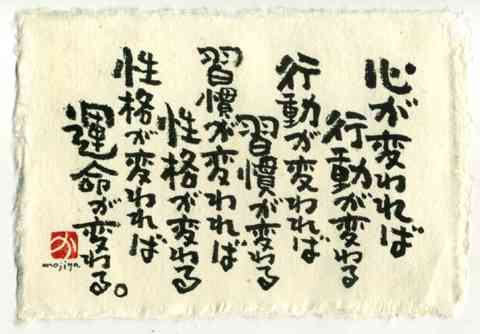 心が変われば
行動が変わる
行動が変われば
習慣が変わる
習慣が変われば
性格が変わる
性格が変われば
運命が変わる。
mojiya